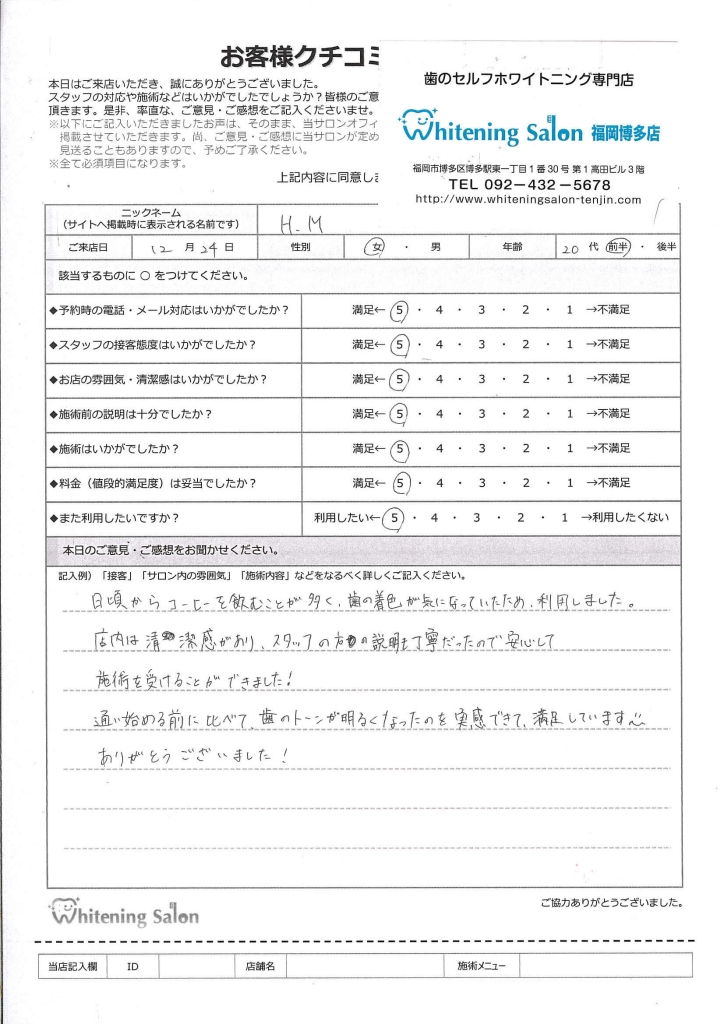 お客様クチコミ
本日はご来店いただき、誠にありがとうございました。
スタッフの対応や施術などはいかがでしたでしょうか？皆様のご意
頂きます。是非、率直な、ご意見・ご感想をご記入くださいませ。
※以下にご記入いただきましたお声は、そのまま、当サロンオフィ
掲載させていただきます。尚、ご意見・ご感想に当サロンが定め
見送ることもありますので、予めご了承ください。
※全て必須項目になります。
上記内容に同意しま
歯のセルフホワイトニング専門店
Whitening Salon 福岡博多店
福岡市博多区博多駅東一丁目1番30号 第1高田ビル3階
TEL 092-432-5678
http://www.whiteningsalon-tenjin.com
ニックネーム
（サイトへ掲載時に表示される名前です） H.M
ご来店日 12 月 24 日 性別 女 ・ 男 年齢 20 代 前半 ・ 後半
該当するものに ○ をつけてください。
◆予約時の電話・メール対応はいかがでしたか？ 満足← 5 ・ 4 ・ 3 ・ 2 ・ 1 →不満足
◆スタッフの接客態度はいかがでしたか？ 満足← 5 ・ 4 ・ 3 ・ 2 ・ 1 →不満足
◆お店の雰囲気・清潔感はいかがでしたか？ 満足← 5 ・ 4 ・ 3 ・ 2 ・ 1 →不満足
◆施術前の説明は十分でしたか？ 満足← 5 ・ 4 ・ 3 ・ 2 ・ 1 →不満足
◆施術はいかがでしたか？ 満足← 5 ・ 4 ・ 3 ・ 2 ・ 1 →不満足
◆料金（値段的満足度）は妥当でしたか？ 満足← 5 ・ 4 ・ 3 ・ 2 ・ 1 →不満足
◆また利用したいですか？ 利用したい← 5 ・ 4 ・ 3 ・ 2 ・ 1 →利用したくない
本日のご意見・ご感想をお聞かせください。
記入例）「接客」「サロン内の雰囲気」「施術内容」などをなるべく詳しくご記入ください。
日頃からコーヒーを飲むことが多く、歯の着色が気になっていたため、利用しました。
店内は清潔感があり、スタッフの方の説明も丁寧だったので安心して
施術を受けることができました！
通い始める前に比べて、歯のトーンが明るくなったのを実感できて、満足しています
ありがとうございました！
Whitening Salon
ご協力ありがとうございました。
当店記入欄 ID 店舗名 施術メニュー